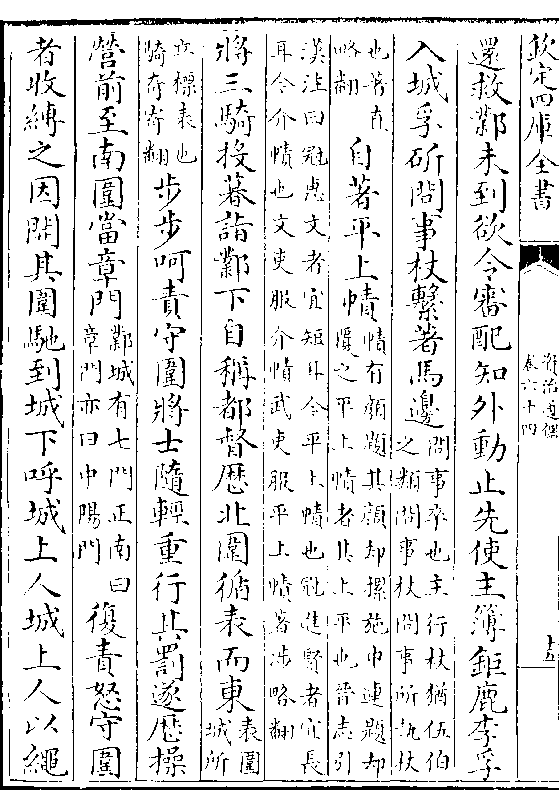 欽定四庫全書
資治通鑑
卷六十四
十五
還救鄴未到欲令審配知外動止先使主簿鉅鹿李孚
入城孚斫問事杖繫著馬邊
問事卒也主行杖猶伍伯
之類問事杖問事所執杖
也著直
略翻
自著平上幘
幘有顔題其顔却摞施巾連題却
覆之平上幘者其上平也晉志引
漢注曰冠惠文者宜短耳今平上幘也冠進賢者宜長
耳今介幘也文吏服介幘武吏服平上幘著涉略翻
將三騎投暮詣鄴下自稱都督歴北圍循表而東
表圍
城所
立標表也
騎奇寄翻
步步呵責守圍將士隨輕重行其罰遂歴操
營前至南圍當章門
鄴城有七門正南曰
章門亦曰中陽門
復責怒守圍
者收縛之因開其圍馳到城下呼城上人城上人以繩